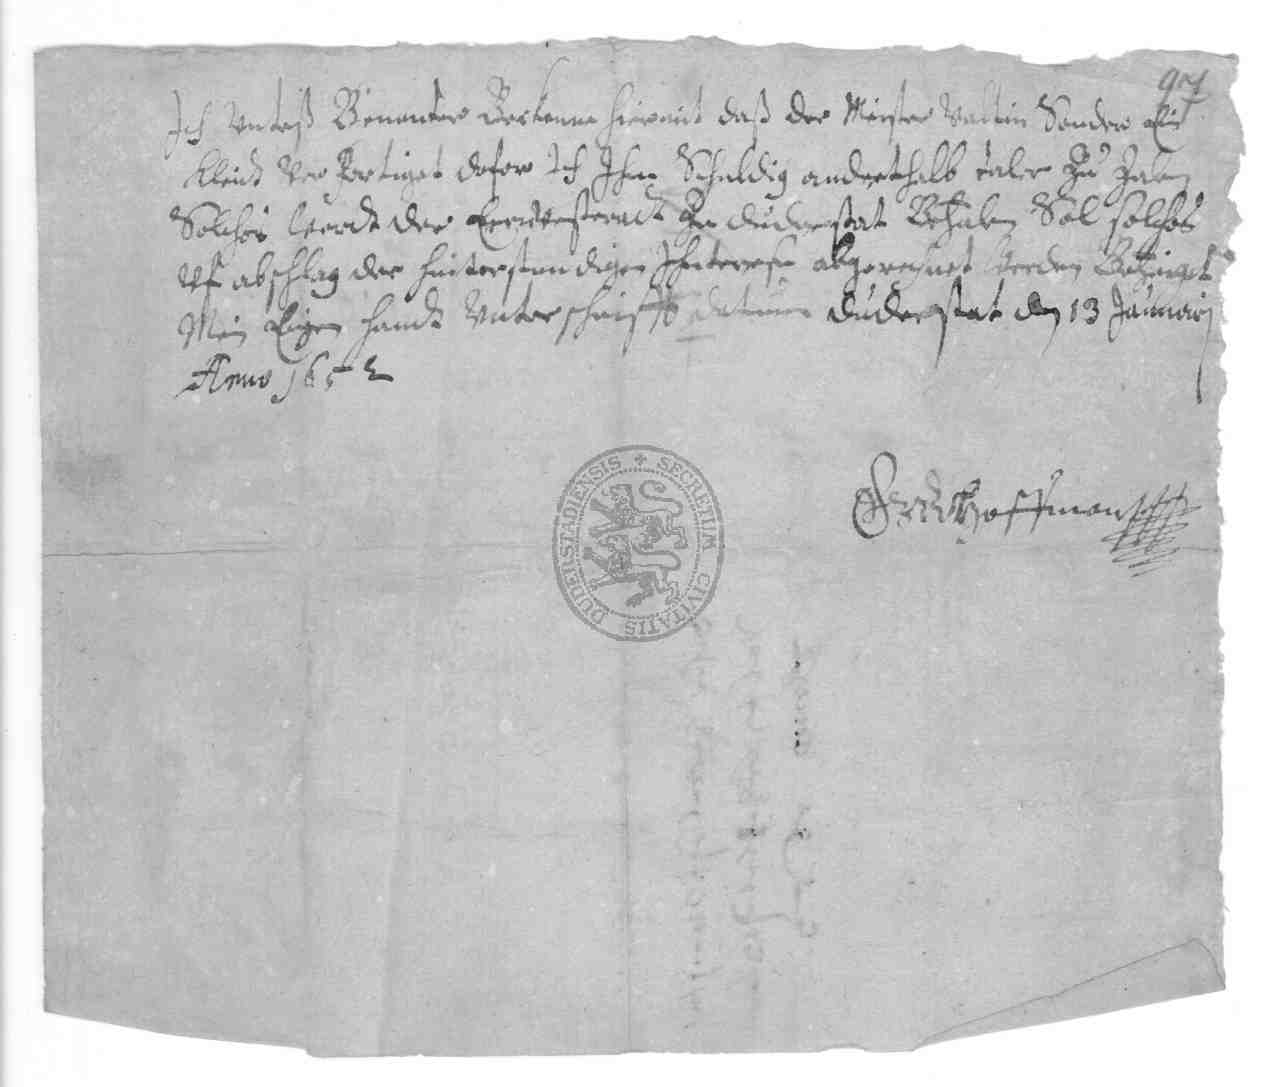 97
Ich Untenß Benanter Berkenne hiermit daß der Meister Valtin Sonder ein
Kleidt Ver Fertiget dafor Ich Ihm Schuldig anderthalb taler Zu Zalen
Solches Werdt der Zu duderstat Bezalen Sol solches
Uf abschlag der hinterstendigen Interesse abgerechnet Werden Bezeuget
Mein Eigen handt Unterschrifft datum duderstat den 13 Januarij
Anno 1652
Hoffman
SECRETUM CIVITATIS DUDERSTADIENSIS